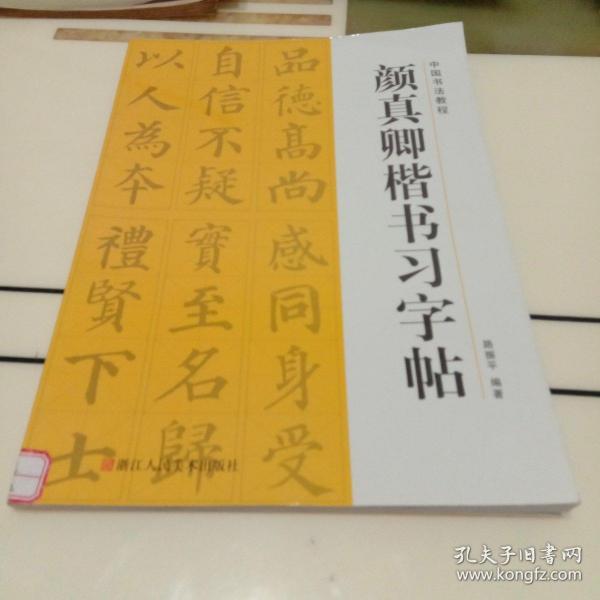 中国书法教程
颜真卿楷书习字帖
路振平 编著
品德高尚
自信不疑
以人為本
感同身受
實至名歸
禮賢下士
浙江人民美术出版社
孔夫子旧书网
www.kongfz.com